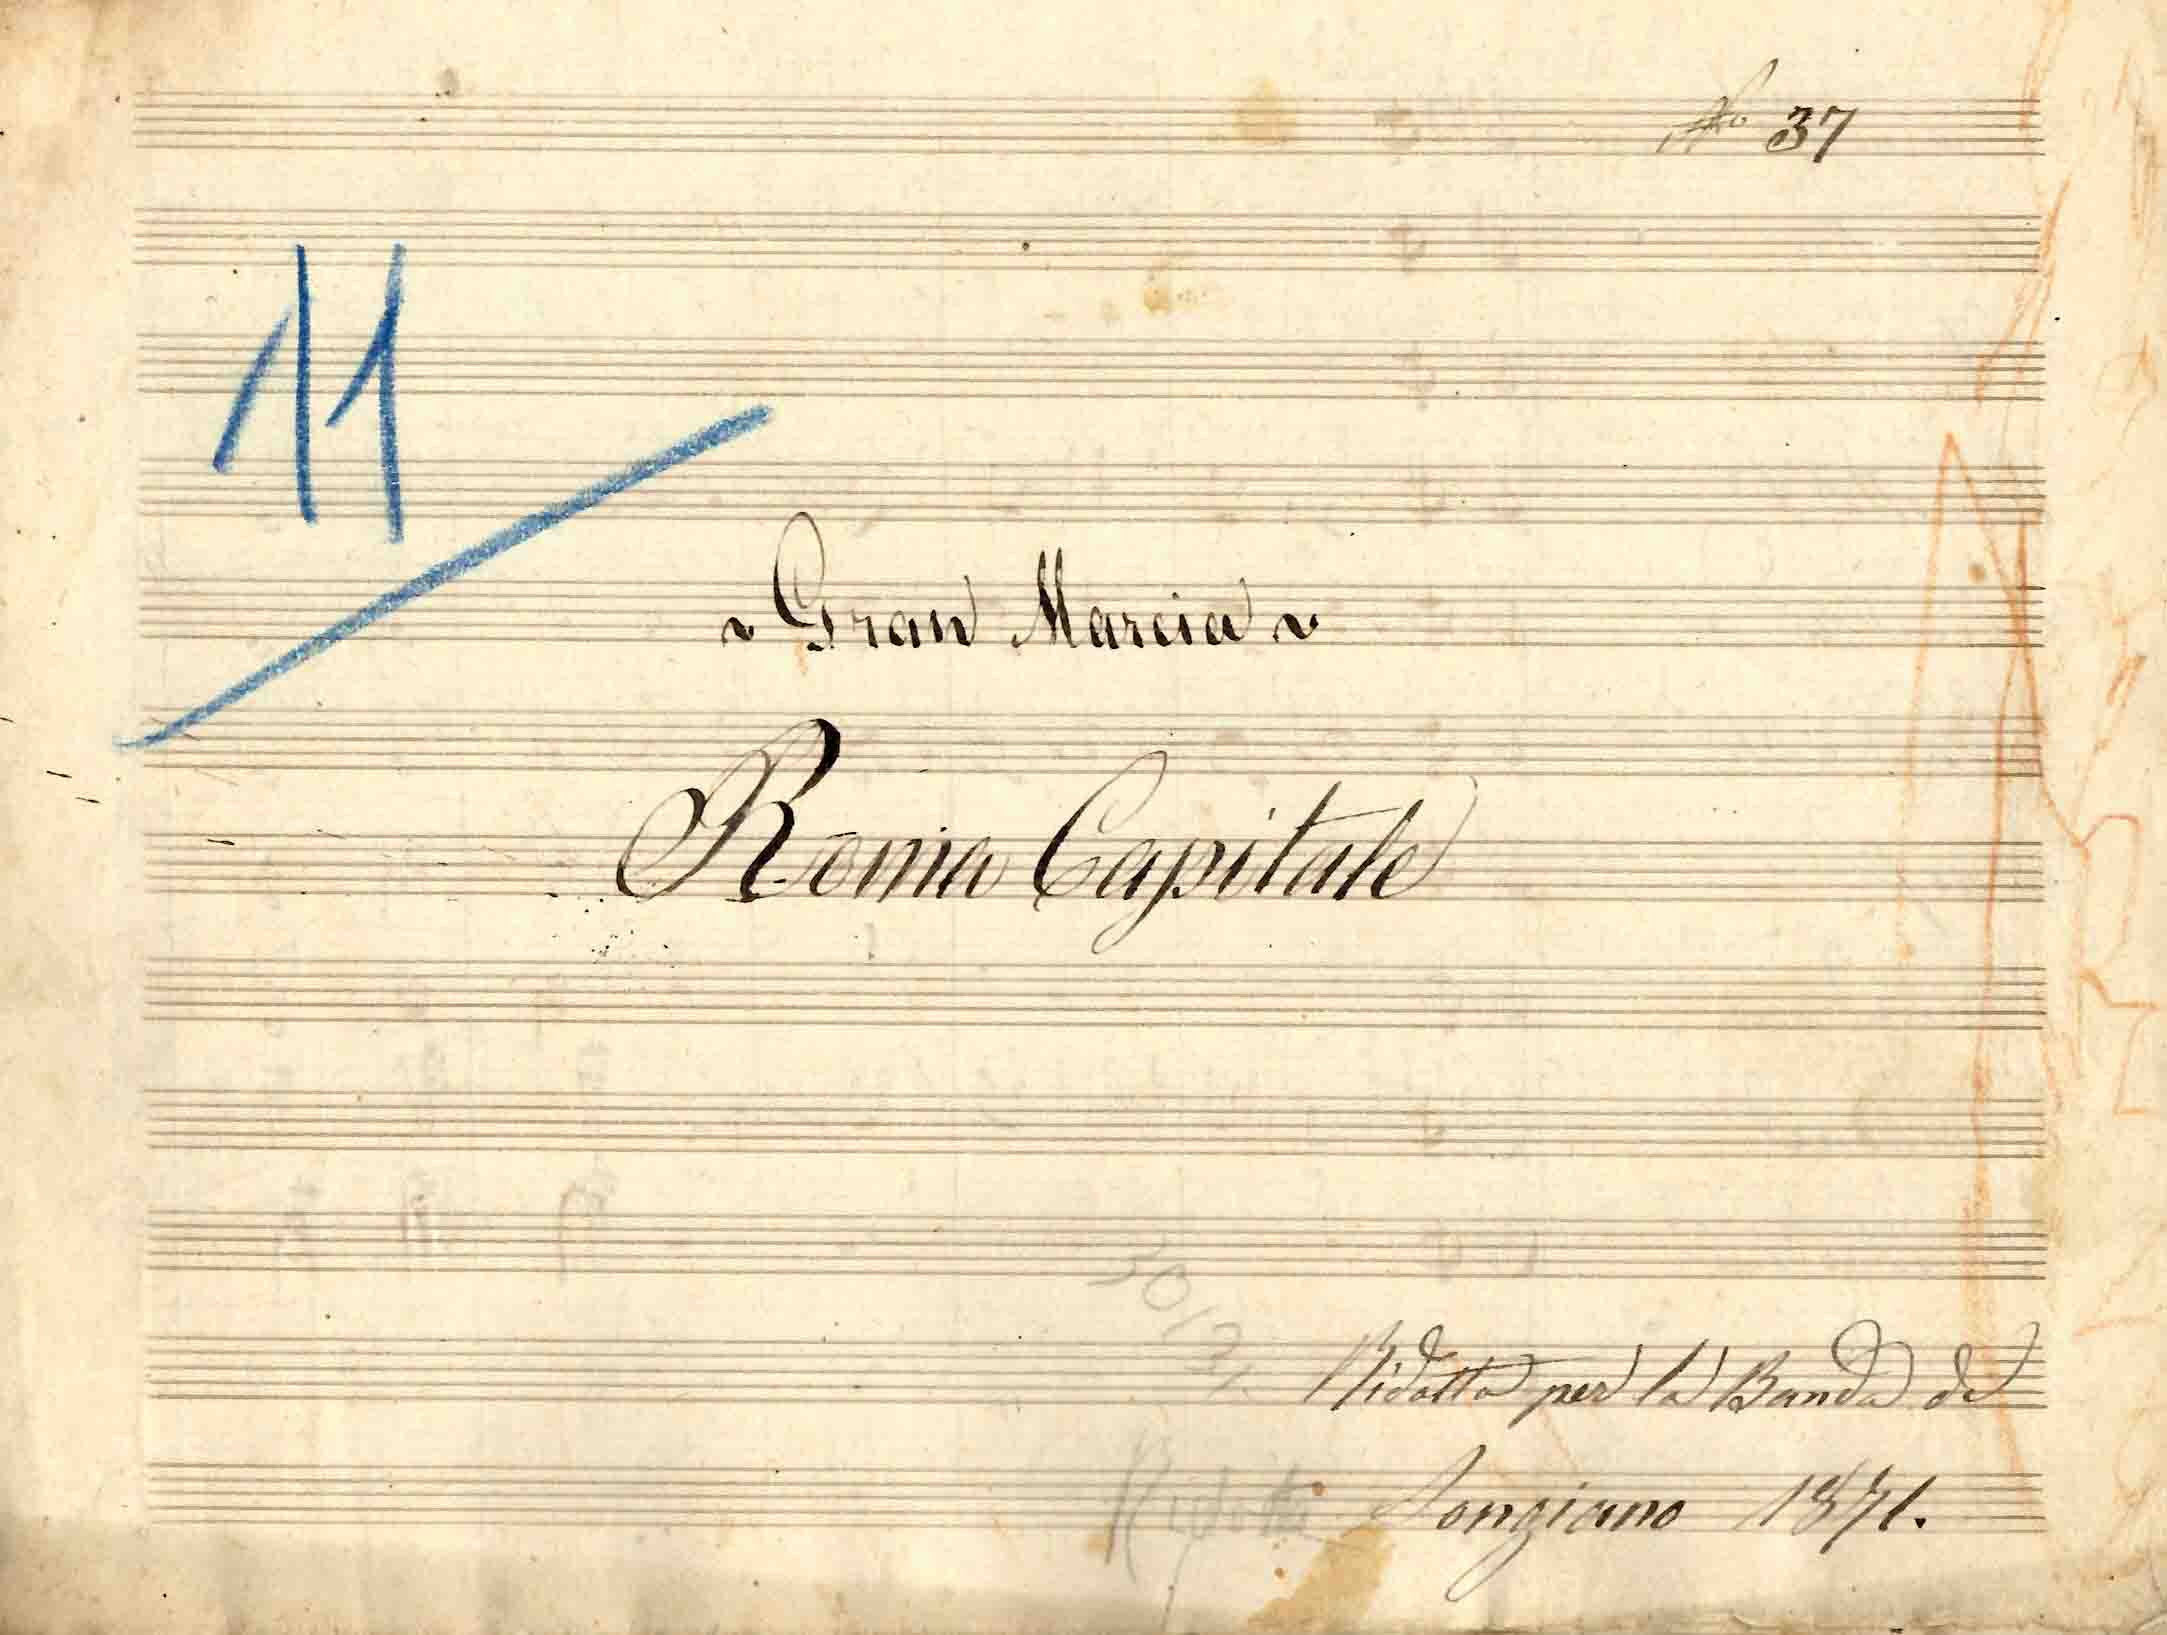 No 37
11
~ Gran Marcia ~
Roma Capitale
Ridotta per la Banda di
Longiano 1871.